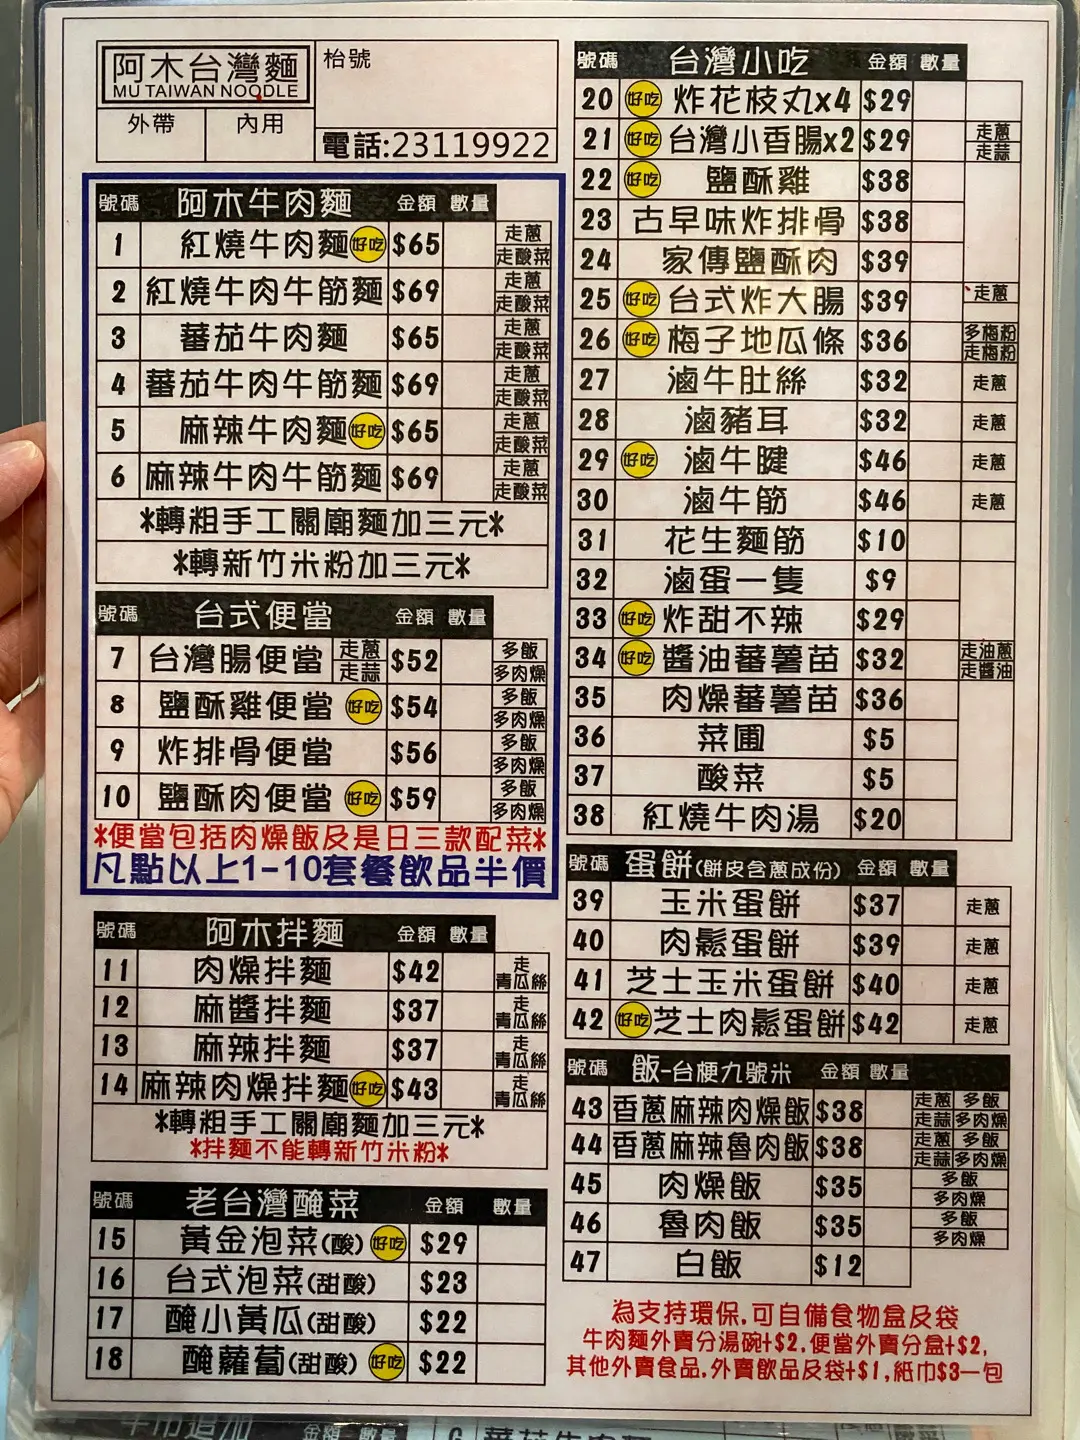 阿木台灣麵
MU TAIWAN NOODLE
枱號
外帶 內用
電話:23119922
號碼 阿木牛肉麵 金額 數量
1 紅燒牛肉麵 好吃 $65 走蔥 走酸菜
2 紅燒牛肉牛筋麵 $69 走蔥 走酸菜
3 蕃茄牛肉麵 $65 走蔥 走酸菜
4 蕃茄牛肉牛筋麵 $69 走蔥 走酸菜
5 麻辣牛肉麵 好吃 $65 走蔥 走酸菜
6 麻辣牛肉牛筋麵 $69 走蔥 走酸菜
*轉粗手工關廟麵加三元*
*轉新竹米粉加三元*
號碼 台式便當 金額 數量
7 台灣腸便當 走蔥 走蒜 $52 多飯 多肉燥
8 鹽酥雞便當 好吃 $54 多飯 多肉燥
9 炸排骨便當 $56 多飯 多肉燥
10 鹽酥肉便當 好吃 $59 多飯 多肉燥
*便當包括肉燥飯及是日三款配菜*
凡點以上1-10套餐飲品半價
號碼 阿木拌麵 金額 數量
11 肉燥拌麵 $42 走青瓜絲
12 麻醬拌麵 $37 走青瓜絲
13 麻辣拌麵 $37 走青瓜絲
14 麻辣肉燥拌麵 好吃 $43 走青瓜絲
*轉粗手工關廟麵加三元*
*拌麵不能轉新竹米粉*
號碼 老台灣醃菜 金額 數量
15 黃金泡菜(酸) 好吃 $29
16 台式泡菜(甜酸) $23
17 醃小黃瓜(甜酸) $22
18 醃蘿蔔(甜酸) 好吃 $22
號碼 台灣小吃 金額 數量
20 好吃 炸花枝丸x4 $29
21 好吃 台灣小香腸x2 $29 走蔥 走蒜
22 好吃 鹽酥雞 $38
23 古早味炸排骨 $38
24 家傳鹽酥肉 $39
25 好吃 台式炸大腸 $39 走蔥
26 好吃 梅子地瓜條 $36 多梅粉 走梅粉
27 滷牛肚絲 $32 走蔥
28 滷豬耳 $32 走蔥
29 好吃 滷牛腱 $46 走蔥
30 滷牛筋 $46 走蔥
31 花生麵筋 $10
32 滷蛋一隻 $9
33 好吃 炸甜不辣 $29
34 好吃 醬油蕃薯苗 $32 走油蔥 走醬油
35 肉燥蕃薯苗 $36
36 菜圃 $5
37 酸菜 $5
38 紅燒牛肉湯 $20
號碼 蛋餅(餅皮含蔥成份) 金額 數量
39 玉米蛋餅 $37 走蔥
40 肉鬆蛋餅 $39 走蔥
41 芝士玉米蛋餅 $40 走蔥
42 好吃 芝士肉鬆蛋餅 $42 走蔥
號碼 飯-台梗九號米 金額 數量
43 香蔥麻辣肉燥飯 $38 走蔥 多飯 走蒜 多肉燥
44 香蔥麻辣魯肉飯 $38 走蔥 多飯 走蒜 多肉燥
45 肉燥飯 $35 多飯 多肉燥
46 魯肉飯 $35 多飯 多肉燥
47 白飯 $12
為支持環保,可自備食物盒及袋
牛肉麵外賣分湯碗+$2,便當外賣分盒+$2,
其他外賣食品,外賣飲品及袋+$1,紙巾$3一包
金額 數量